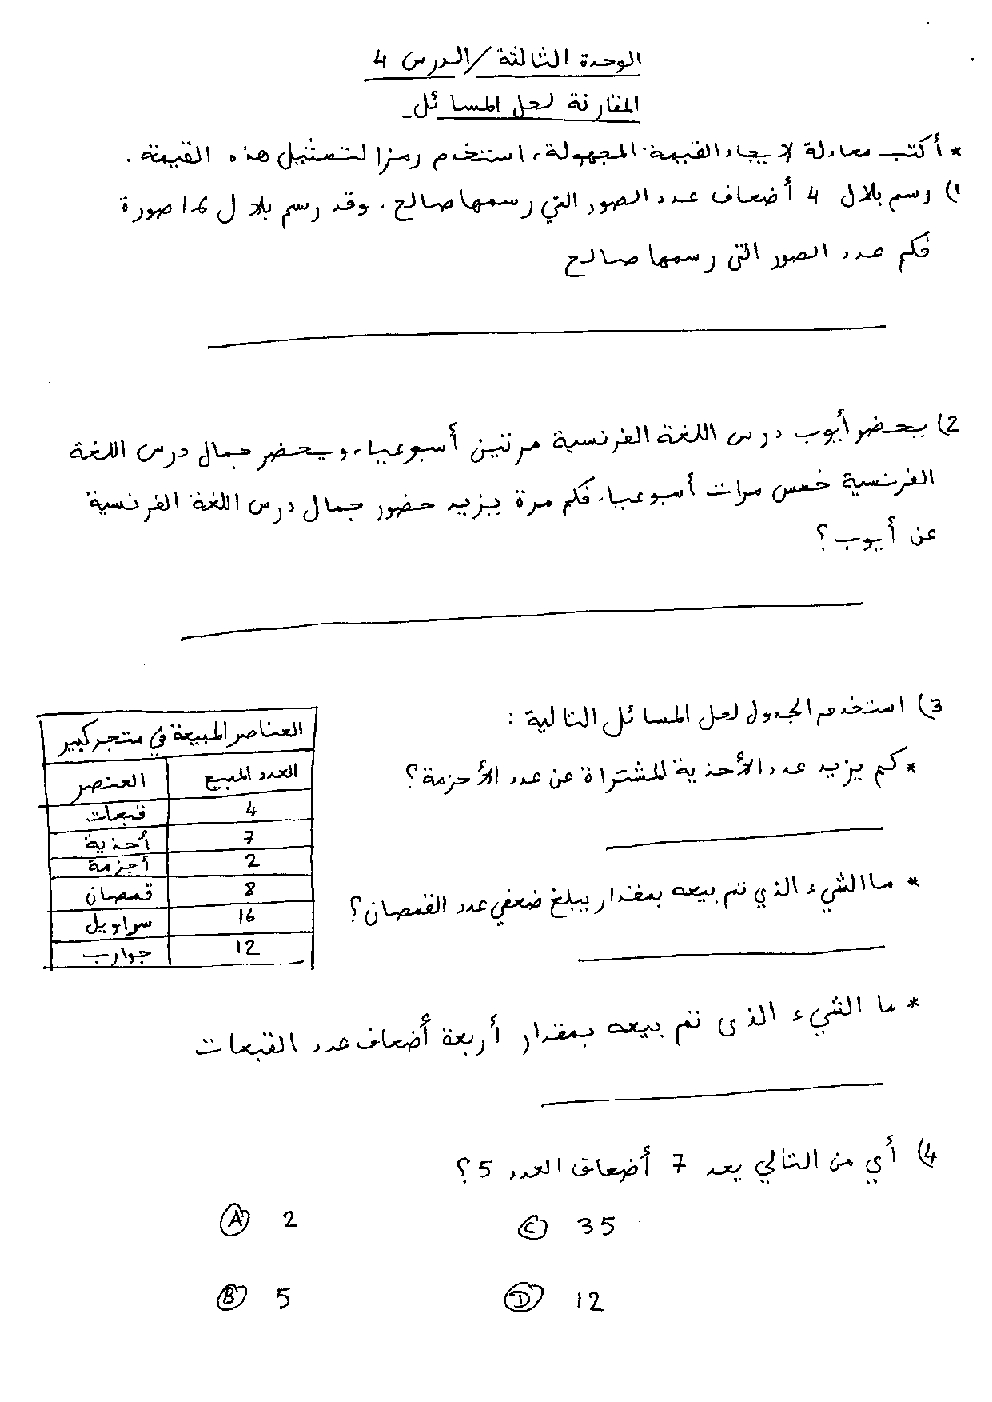 الوحدة الثالثة / الدرس 4
المقارنة لحل المسائل
* أكتب معادلة لإيجاد القيمة المجهولة، استخدم رمزا لتمثيل هذه القيمة.
1) رسم بلال 4 أضعاف عدد الصور التي رسمها صالح. وقد رسم بلال 16 صورة
فكم عدد الصور التي رسمها صالح
2) يحضر أيوب درس اللغة الفرنسية مرتين أسبوعيا، ويحضر جمال درس اللغة
الفرنسية خمس مرات أسبوعيا. فكم مرة يزيد حضور جمال درس اللغة الفرنسية
عن أيوب؟
3) استخدم الجدول لحل المسائل التالية:
* كم يزيد عدد الأحذية المشتراة عن عدد الأحزمة؟
* ما الشيء الذي تم بيعه بمقدار يبلغ ضعفي عدد القمصان؟
* ما الشيء الذي تم بيعه بمقدار أربعة أضعاف عدد القبعات
العناصر المبيعة في متجر كبير
العدد المبيع العنصر
4 قبعات
7 أحذية
2 أحزمة
8 قمصان
16 سراويل
12 جوارب
4) أي من التالي يعد 7 أضعاف العدد 5؟
A 2
C 35
B 5
D 12